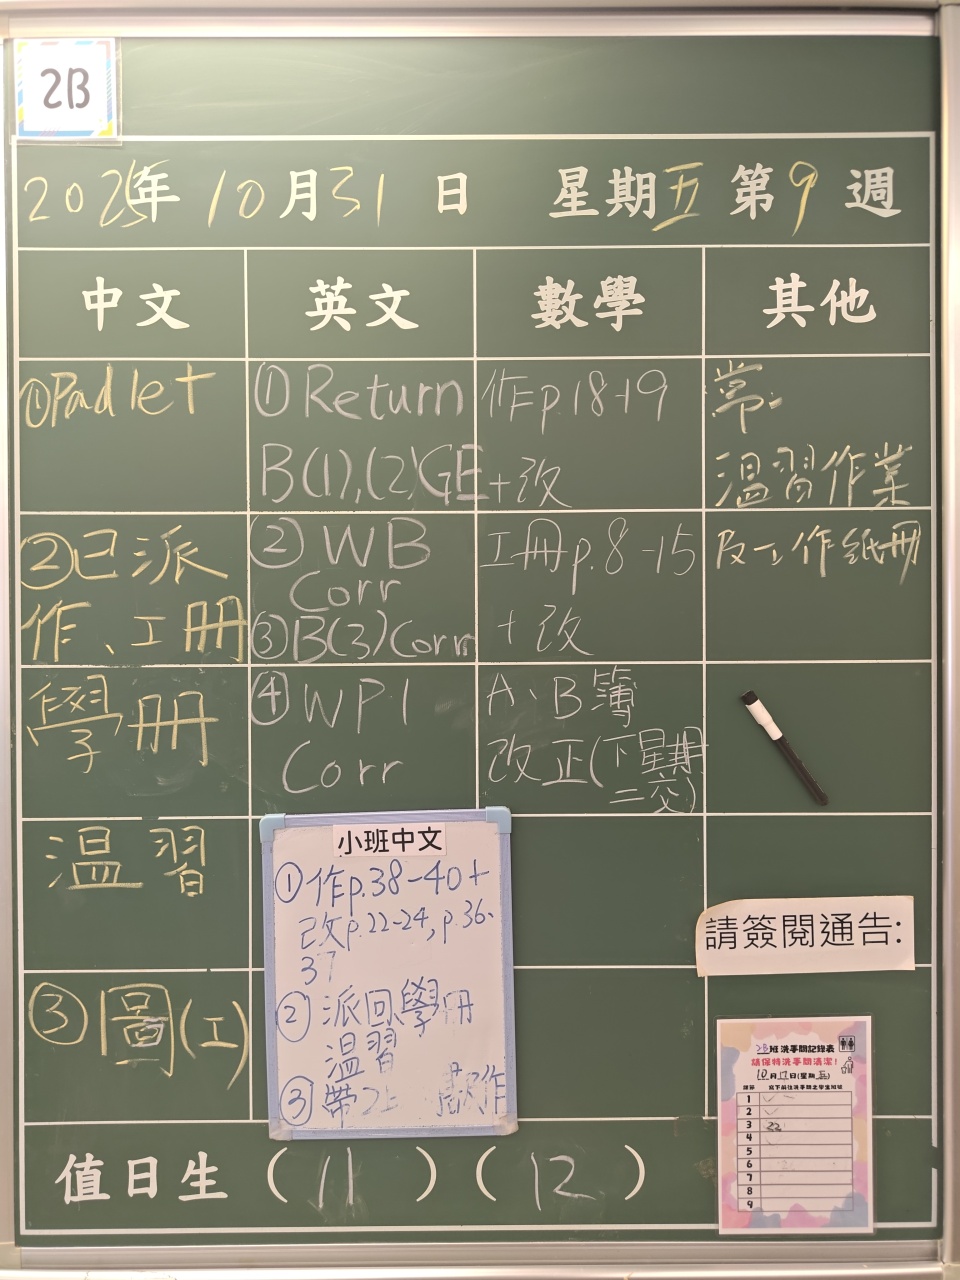 2B
2025年 10月31日 星期五 第9週
中文
①Padlet
②已派
作、工冊
學冊
温習
③圖(工)
英文
①Return
B(1),(2)GE
②WB
Corr
③B(3)Corr
④WP1
Corr
數學
作p.18-19
+改
工冊p.8-15
+改
A、B簿
改正(下星期
二交)
其他
常:
温習作業
及工作紙冊
小班中文
①作p.38-40+
改p.22-24, p.36-
37
②派回學冊
温習
③帶2上
請簽閱通告:
2B班洗手間記錄表
請保持洗手間清潔!
10月17日(星期五)
課節 寫下前往洗手間之學生班號
1
2
3 22
4
5
6
7
8
9
值日生 (11) (12)